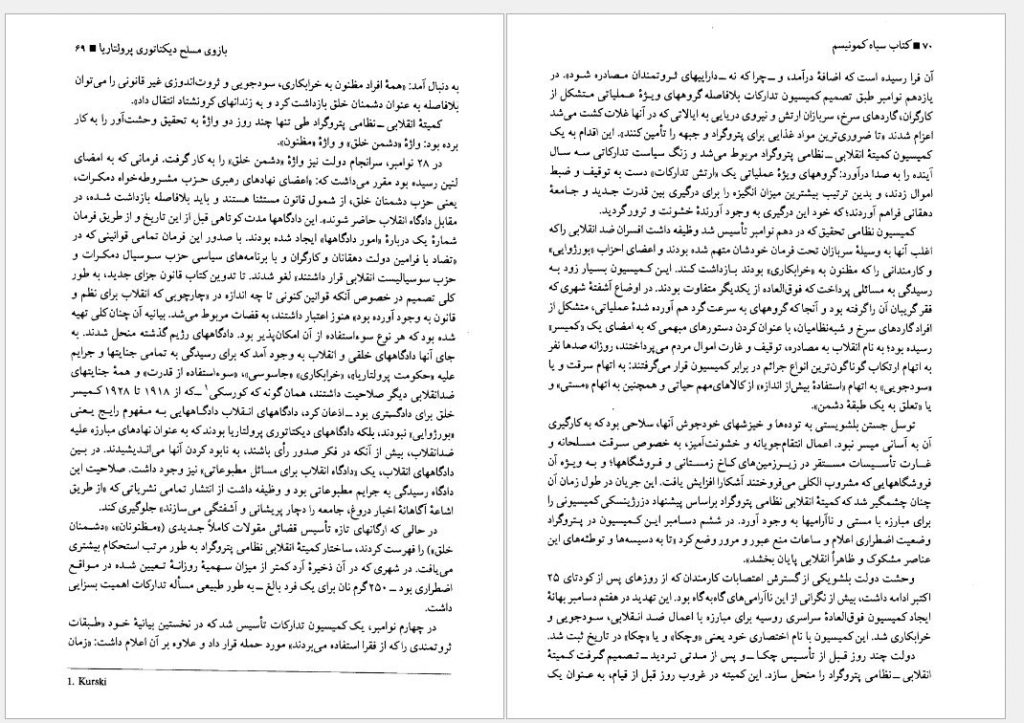 بازوی مسلح دیکتاتوری پرولتاریا ■ ۶۹
به دنبال آمد: «همهٔ افراد مظنون به خرابکاری، سودجویی و ثروت‌اندوزی غیر قانونی را می‌توان
بلافاصله به عنوان دشمنان خلق بازداشت کرد و به زندانهای کرونشتاد انتقال داد».
کمیتهٔ انقلابی ـ نظامی پتروگراد طی تنها چند روز دو واژهٔ به تحقیق وحشت‌آور را به کار
برده بود: واژهٔ «دشمن خلق» و واژهٔ «مظنون».
در ۲۸ نوامبر، سرانجام دولت نیز واژهٔ «دشمن خلق» را به کار گرفت. فرمانی که به امضای
لنین رسیده بود مقرر می‌داشت که: «اعضای نهادهای رهبری حزب مشروطه‌خواه دمکرات،
یعنی حزب دشمنان خلق، از شمول قانون مستثنا هستند و باید بلافاصله بازداشت شده، در
مقابل دادگاه انقلاب حاضر شوند». این دادگاهها مدت کوتاهی قبل از این تاریخ و از طریق فرمان
شمارهٔ یک دربارهٔ «امور دادگاهها» ایجاد شده بودند. با صدور این فرمان تمامی قوانینی که در
«تضاد با فرامین دولت دهقانان و کارگران و یا برنامه‌های سیاسی حزب سوسیال دمکرات و
حزب سوسیالیست انقلابی قرار داشتند» لغو شدند. تا تدوین کتاب قانون جزای جدید، به طور
کلی تصمیم در خصوص آنکه قوانین کنونی تا چه اندازه در «چارچوبی که انقلاب برای نظم و
قانون به وجود آورده بود» هنوز اعتبار داشتند، به قضات مربوط می‌شد. بیانیه آن چنان کلی تهیه
شده بود که هر نوع سوء‌استفاده از آن امکان‌پذیر بود. دادگاههای رژیم گذشته منحل شدند. به
جای آنها دادگاههای خلقی و انقلاب به وجود آمد که برای رسیدگی به تمامی جنایتها و جرایم
علیه «حکومت پرولتاریا»، «خرابکاری» «جاسوسی»، «سوء‌استفاده از قدرت» و همهٔ جنایتهای
ضدانقلابی دیگر صلاحیت داشتند، همان گونه که کورسکی۱ ـ که از ۱۹۱۸ تا ۱۹۲۸ کمیسر
خلق برای دادگستری بود ـ اذعان کرد، دادگاههای انقلاب دادگاههایی به مفهوم رایج یعنی
«بورژوایی» نبودند، بلکه دادگاههای دیکتاتوری پرولتاریا بودند که به عنوان نهادهای مبارزه علیه
ضدانقلاب، بیش از آنکه در فکر صدور رأی باشند، به نابود کردن آنها می‌اندیشیدند. در بین
دادگاههای انقلاب، یک «دادگاه انقلاب برای مسائل مطبوعاتی» نیز وجود داشت. صلاحیت این
دادگاه رسیدگی به جرایم مطبوعاتی بود و وظیفه داشت از انتشار تمامی نشریاتی که «از طریق
اشاعهٔ آگاهانهٔ اخبار دروغ، جامعه را دچار پریشانی و آشفتگی می‌سازند» جلوگیری کند.
در حالی که ارگانهای تازه تأسیس قضائی مقولات کاملاً جدیدی («مظنونان»، «دشمنان
خلق») را فهرست کردند، ساختار کمیتهٔ انقلابی نظامی پتروگراد به طور مرتب استحکام بیشتری
می‌یافت. در شهری که در آن ذخیرهٔ آرد کمتر از میزان سهمیهٔ روزانهٔ تعیین شده در مواقع
اضطراری بود ـ ۲۵۰ گرم نان برای یک فرد بالغ ـ به طور طبیعی مسأله تدارکات اهمیت بسزایی
داشت.
در چهارم نوامبر، یک کمیسیون تدارکات تأسیس شد که در نخستین بیانیهٔ خود «طبقات
ثروتمندی را که از فقرا استفاده می‌بردند» مورد حمله قرار داد و علاوه بر آن اعلام داشت: «زمان
1. Kurski
۷۰ ■ کتاب سیاه کمونیسم
آن فرا رسیده است که اضافهٔ درآمد، و ـ چرا که نه ـ داراییهای ثروتمندان مصادره شود». در
یازدهم نوامبر طبق تصمیم کمیسیون تدارکات بلافاصله گروههای ویژهٔ عملیاتی متشکل از
کارگران، گاردهای سرخ، سربازان ارتش و نیروی دریایی به ایالاتی که در آنها غلات کشت می‌شد
اعزام شدند «تا ضروری‌ترین مواد غذایی برای پتروگراد و جبهه را تأمین کنند». این اقدام به یک
کمیسیون کمیتهٔ انقلابی ـ نظامی پتروگراد مربوط می‌شد و زنگ سیاست تدارکاتی سه سال
آینده را به صدا درآورد: گروههای ویژهٔ عملیاتی یک «ارتش تدارکات» دست به توقیف و ضبط
اموال زدند، و بدین ترتیب بیشترین میزان انگیزه را برای درگیری بین قدرت جدید و جامعهٔ
دهقانی فراهم آوردند؛ که خود این درگیری به وجود آورندهٔ خشونت و ترور گردید.
کمیسیون نظامی تحقیق که در دهم نوامبر تأسیس شد وظیفه داشت افسران ضد انقلابی را که
اغلب آنها به وسیلهٔ سربازان تحت فرمان خودشان متهم شده بودند و اعضای احزاب «بورژوایی»
و کارمندانی را که مظنون به «خرابکاری» بودند بازداشت کنند. این کمیسیون بسیار زود به
رسیدگی به مسائلی پرداخت که فوق‌العاده از یکدیگر متفاوت بودند. در اوضاع آشفتهٔ شهری که
فقر گریبان آن را گرفته بود و آنجا که گروههای به سرعت گرد هم آورده شدهٔ عملیاتی، متشکل از
افراد گاردهای سرخ و شبه‌نظامیان، با عنوان کردن دستورهای مبهمی که به امضای یک «کمیسر»
رسیده بود؛ به نام انقلاب به مصادره، توقیف و غارت اموال مردم می‌پرداختند، روزانه صدها نفر
به اتهام ارتکاب گوناگون‌ترین انواع جرائم در برابر کمیسیون قرار می‌گرفتند: به اتهام سرقت و یا
«سودجویی» به اتهام «استفادهٔ بیش از اندازه» از کالاهای مهم حیاتی و همچنین به اتهام «مستی» و
یا «تعلق به یک طبقهٔ دشمن».
توسل جستن بلشویستی به توده‌ها و خیزشهای خودجوش آنها، سلاحی بود که به کارگیری
آن به آسانی میسر نبود. اعمال انتقام‌جویانه و خشونت‌آمیز، به خصوص سرقت مسلحانه و
غارت تأسیسات مستقر در زیرزمین‌های کاخ زمستانی و فروشگاهها؛ و به ویژه آن
فروشگاههایی که مشروب الکلی می‌فروختند آشکارا افزایش یافت. این جریان در طول زمان آن
چنان چشمگیر شد که کمیتهٔ انقلابی نظامی پتروگراد براساس پیشنهاد دزرژینسکی کمیسیونی را
برای مبارزه با مستی و ناآرامیها به وجود آورد. در ششم دسامبر این کمیسیون در پتروگراد
وضعیت اضطراری اعلام و ساعات منع عبور و مرور وضع کرد «تا به دسیسه‌ها و توطئه‌های این
عناصر مشکوک و ظاهراً انقلابی پایان بخشد».
وحشت دولت بلشویکی از گسترش اعتصابات کارمندان که از روزهای پس از کودتای ۲۵
اکتبر ادامه داشت، بیش از نگرانی از این ناآرامی‌های گاه‌به‌گاه بود. این تهدید در هفتم دسامبر بهانهٔ
ایجاد کمیسیون فوق‌العادهٔ سراسری روسیه برای مبارزه با اعمال ضد انقلابی، سودجویی و
خرابکاری شد. این کمیسیون با نام اختصاری خود یعنی «وچکا» و یا «چکا» در تاریخ ثبت شد.
دولت چند روز قبل از تأسیس چکا ـ و پس از مدتی تردید ـ تصمیم گرفت کمیتهٔ
انقلابی ـ نظامی پتروگراد را منحل سازد. این کمیته در غروب روز قبل از قیام، به عنوان یک